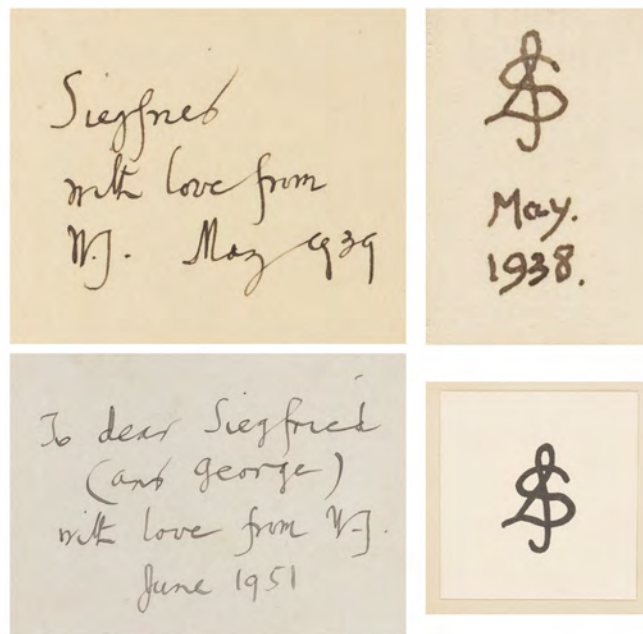 Siegfried
with love from
W.J. May 1939
May.
1938.
To dear Siegfried
(and George)
with love from W.J.
June 1951